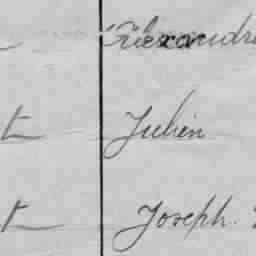 Alexandre
t Julien
t Joseph